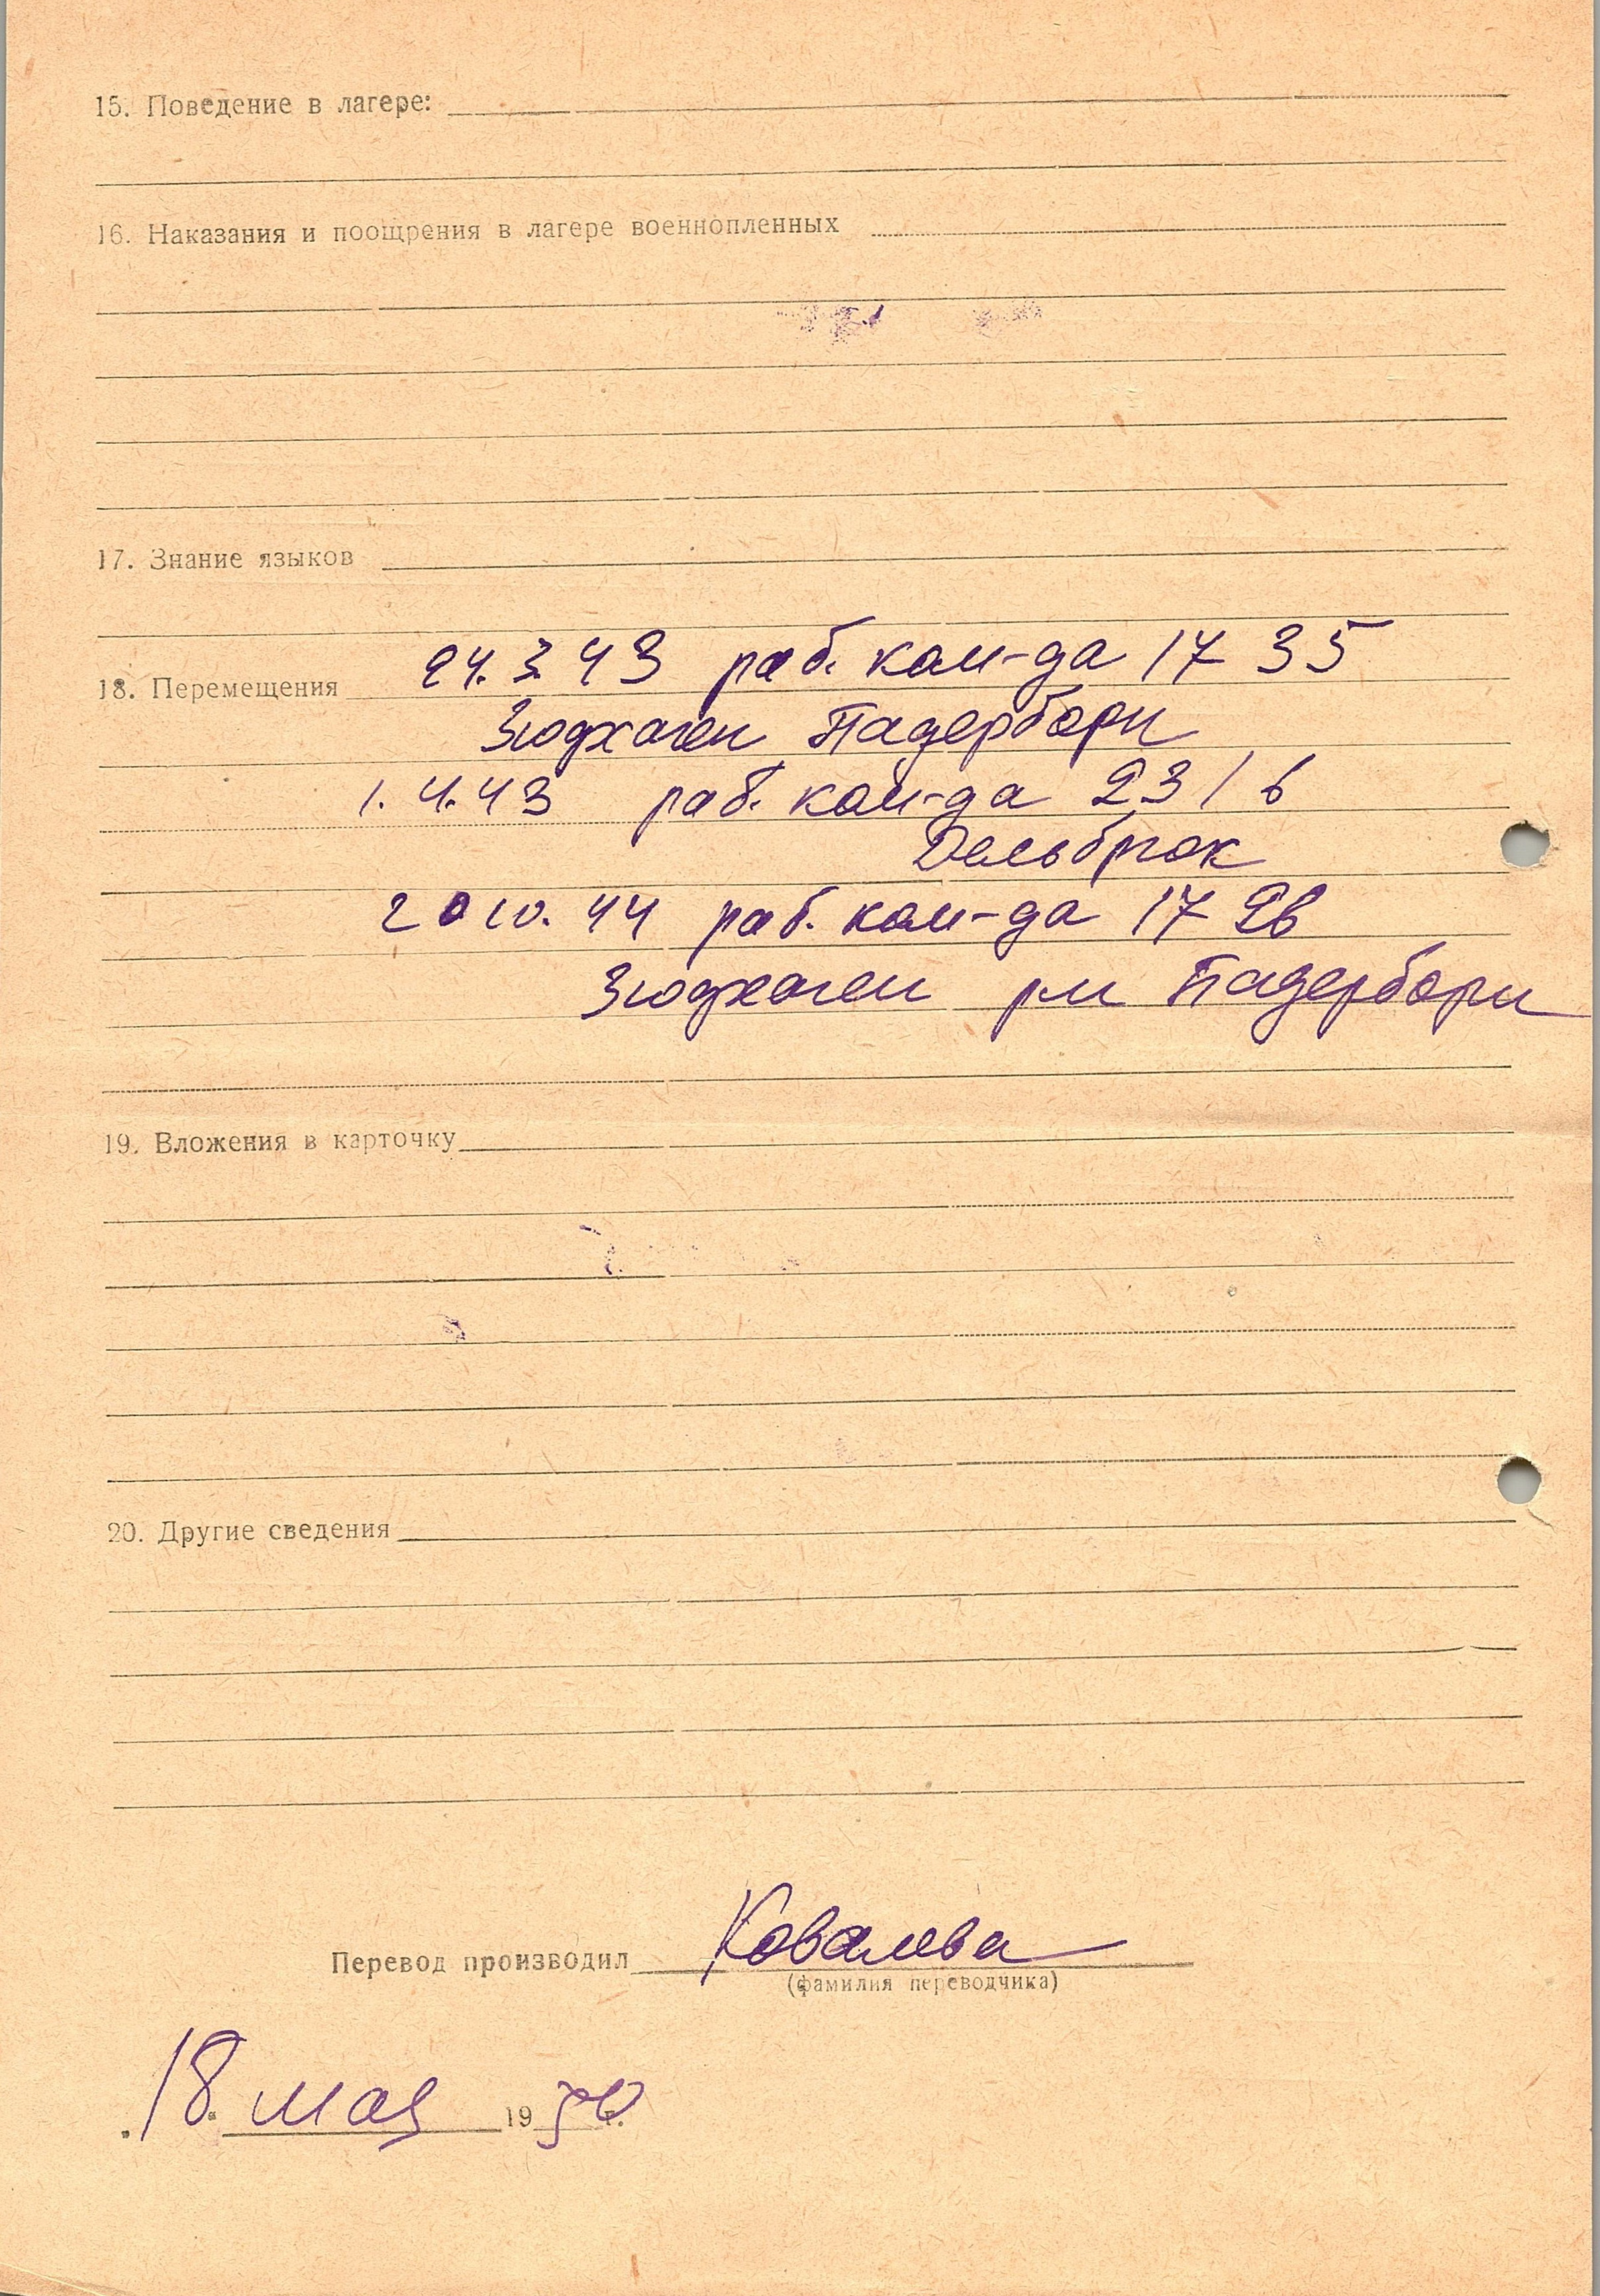 15. Поведение в лагере:
16. Наказания и поощрения в лагере военнопленных
17. Знание языков
18. Перемещения 24. 3. 43 раб. ком-да 17 35
Зюдхаген Падерборн
1. 4. 43 раб. ком-да 231 в
Дельбрюк
20 10. 44 раб. ком-да 17 2в
Зюдхаген рн Падерборн
19. Вложения в карточку
20. Другие сведения
Перевод производил Ковалева
(фамилия переводчика)
18 мая 1950 г.